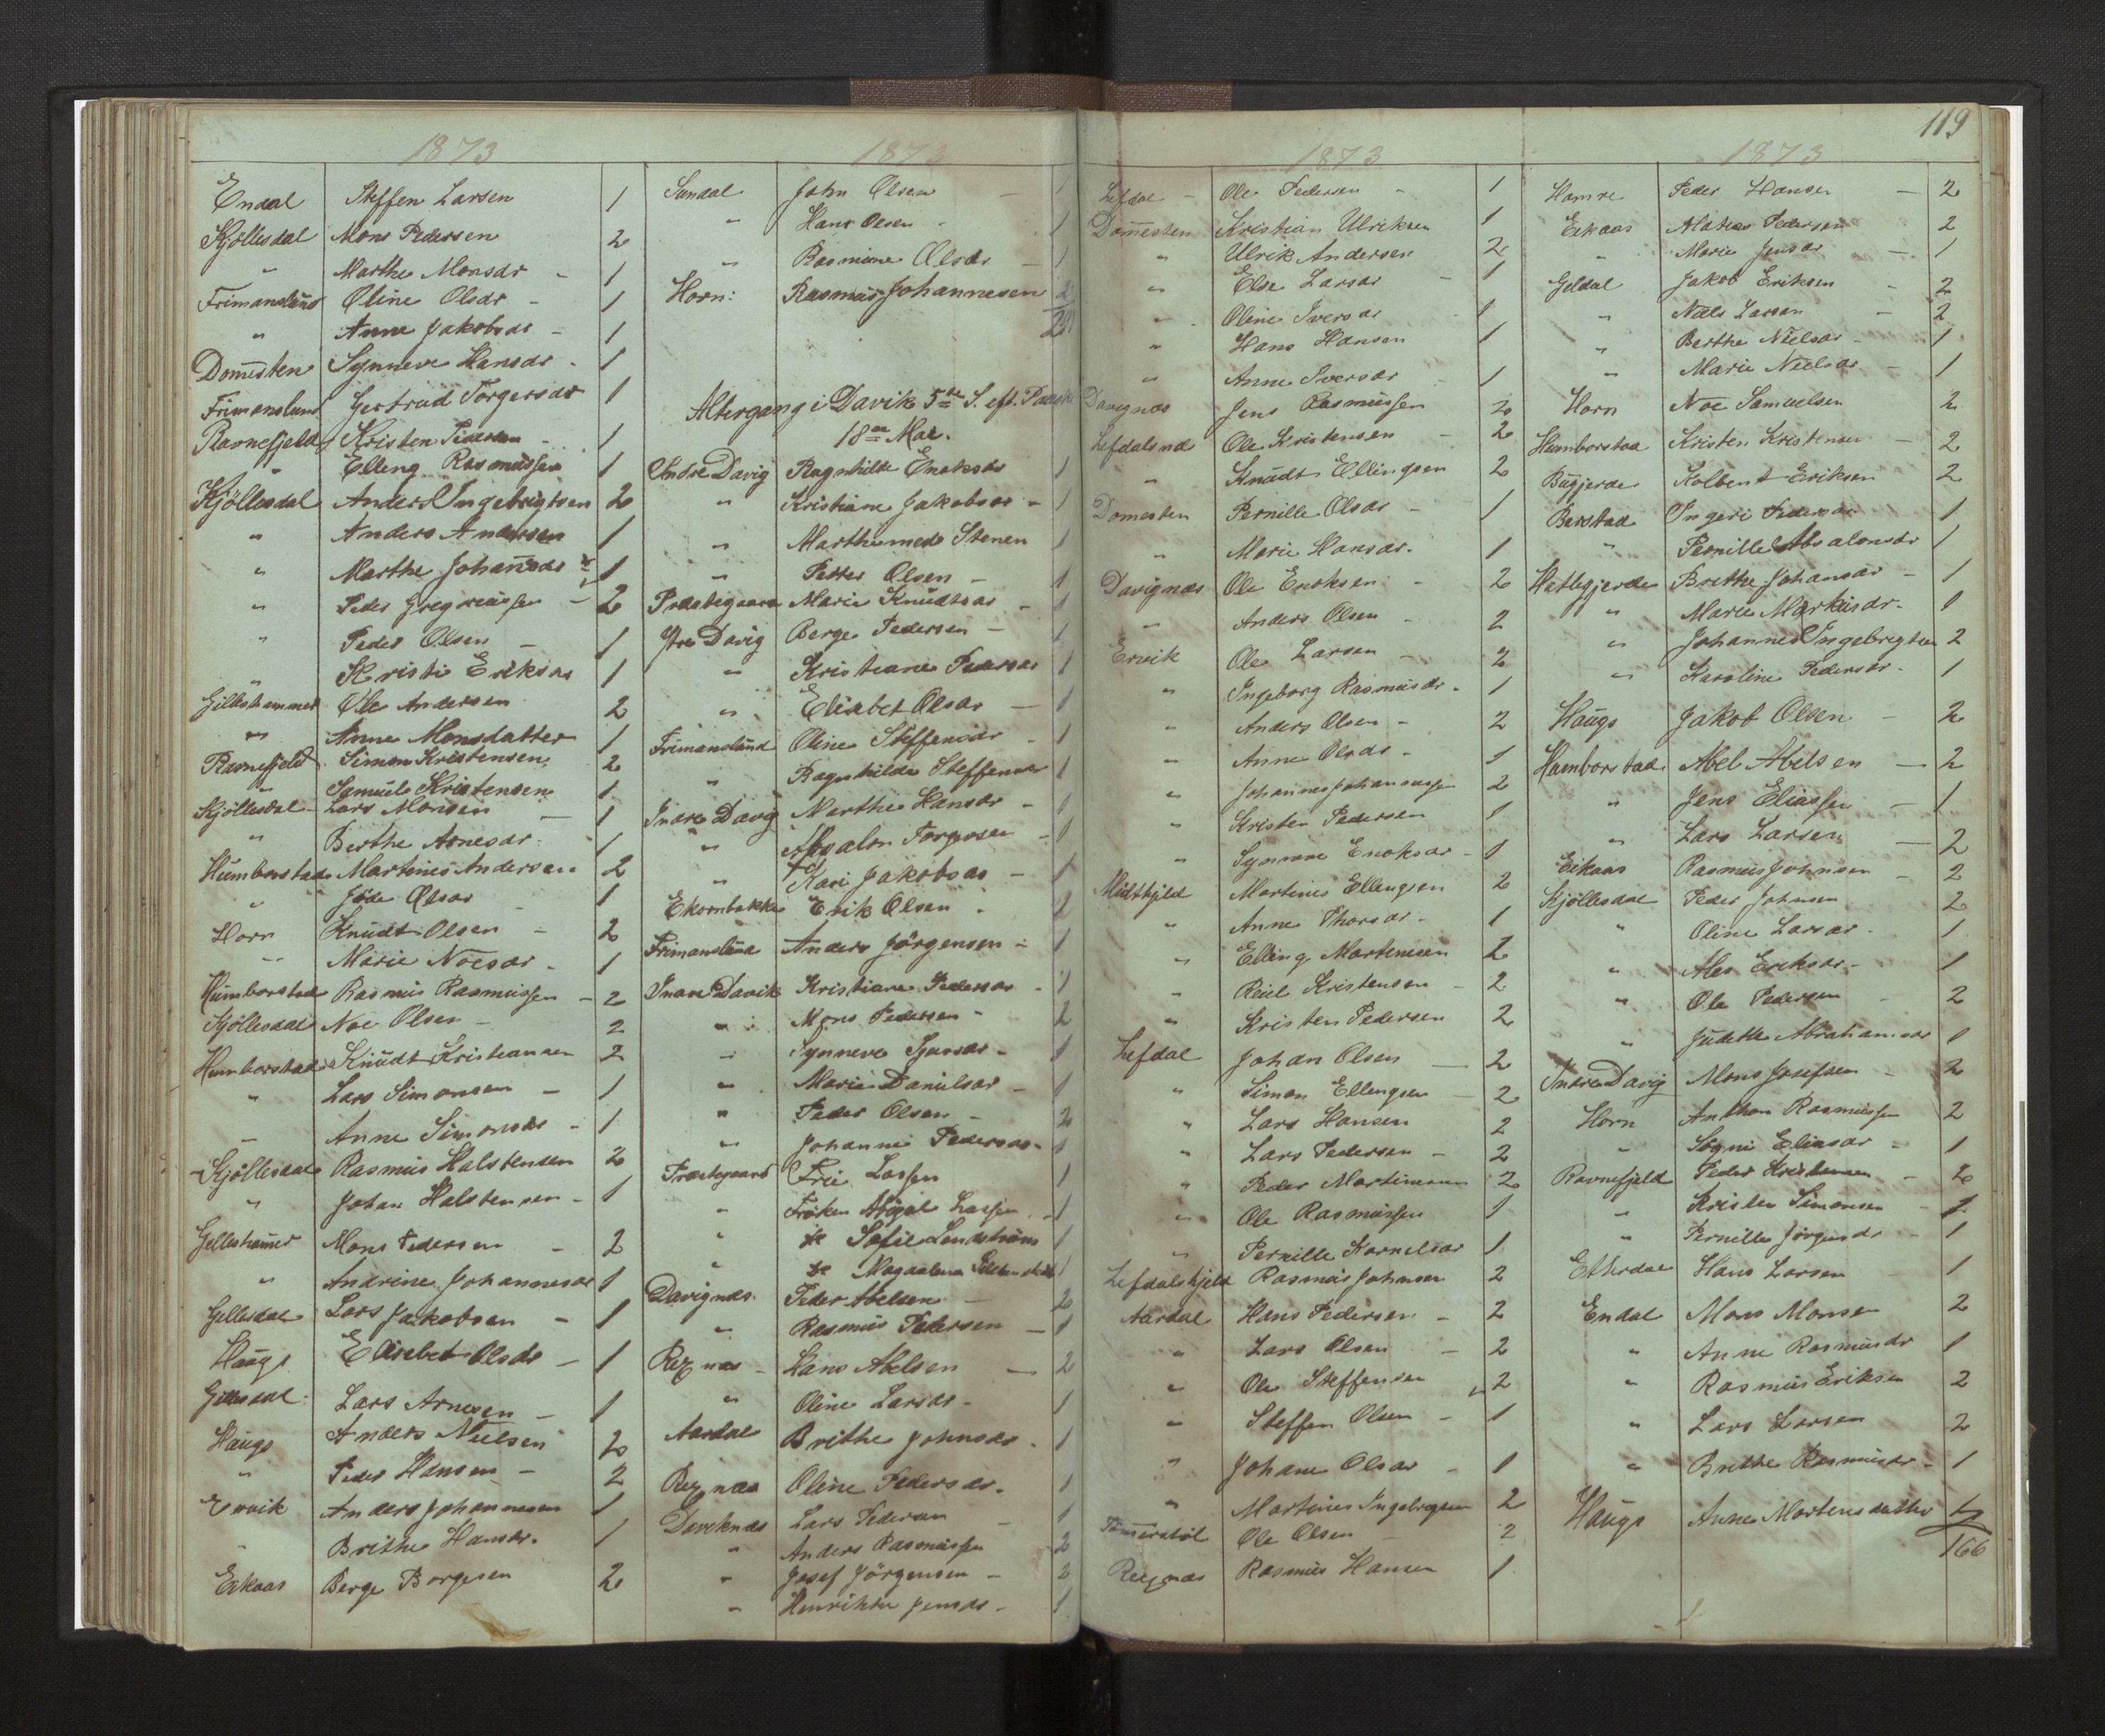 1873
Endal Steffen Larsen 1
Kjöllesdal Mons Pedersen 2
" Marthe Monsdr - 1
Frimanslund Oline Olsdr - 1
" Anne Jakobsdr - 1
Domesten Synneve Hansdr - 1
Frimanslund Gertrud Torgersdr 1
Ravnefjeld Kristen Pedersen - 1
" Elling Rasmussen 1
Kjöllesdal Anders Ingebrigtsen 2
" Anders Andersen 1
" Marthe Johansdr 1
" Peder Gregoriussen - 2
" Peder Olsen - 1
" Kristi Eriksdr 1
Gilleshammer Ole Andersen 2
" Anne Monsdatter 1
Ravnefjeld Simon Kristensen 2
" Samuel Kristensen 1
Kjöllesdal Lars Monsen - 1
" Berthe Arnesdr. 1
Humborstad Martinus Andersen 2
" Olsdr - 1
Horn Knudt Olsen - 2
" Marie Noesdr - 1
Humborstad Rasmus Rasmussen - 2
Kjöllesdal Noe Olsen - 2
Humborstad Knudt Kristiansen 2
" Lars Simonsen - 1
" Anne Simonsdr - 1
Kjöllesdal Rasmus Halstensen 2
" Johan Halstensen - 1
Gilleshamer Mons Pedersen - 2
" Andrine Johannesdr 1
Gillesdal Lars Jakobsen - 1
Haugs Elisabet Olsdr - 1
Gillesdal Lars Arnesen - 1
Haugs Anders Nielsen 2
" Peder Hansen - 2
Ervik Anders Johannesen 1
" Brithe Hansdr. 1
Eikaas Berge Borgesen 2
1873
Sandal John Olsen - 1
" Hans Olsen - 1
" Rasmine Olsdr - 1
Horn: Rasmus Johannesen 2
Altergang i Davik 5te S. eft. Paaske
18de Mai.
Indre Davig Ragnhilde Enoksdr 1
" Kristiane Jakobsdr - 1
" Marthe Stenen 1
" Petter Olsen - 1
Præstegaard Marie Knudtsdr - 1
Ytre Davig Berge Pedersen - 1
" Kristiane Pedersdr 1
" Elisabet Olsdr - 1
Frimanslund Oline Steffensdr - 1
" Ragnhilde Steffensdr 1
Indre Davig Marthe Hansdr - 1
" Absalon Torgersen - 1
" Kari Jakobsdr - 1
Ekornbakke Erik Olsen - 2
Frimanslund Anders Jörgensen - 1
Indre Davik Kristiane Pedersdr - 1
" Mons Pedersen - 2
" Synneve 1
" Marie Danielsdr - 1
" Peder Olsen - 2
" Johanne Pedersdr - 1
Præstegaard Frue Lassen 1
" Fröken Lassen - 1
" do Sofie Lendström 1
" do Magdalena 1
Davignæs Peder Abelsen - 2
" Rasmus Pedersen - 1
Rexnæs - Hans Abelsen - 2
" Oline Larsdr - 1
Aardal Brithe Johnsdr - 1
Rexnæs Oline Pedersdr. 1
Daviknæs Lars Pedersen - 1
" Anders Rasmussen 2
" Josef Jörgensen - 2
" Henrikke Jensdr - 1
1873
Lefdal - Ole Pedersen - 1
Domesten Kristian Ulriksen 1
" Ulrik Andersen 2
" Else Larsdr - 1
" Oline Iversdr 1
" Hans Hansen 1
" Anne Iversdr - 1
Davignæs Jens Rasmussen 2
Lefdalsnd Ole Kristensen - 2
" Knudt Ellingsen 2
Domesten Pernille Olsdr - 1
" Marie Hansdr. 1
Davignæs Ole Enoksen - 2
" Anders Olsen - 2
Ervik Ole Larsen - 2
" Ingeborg Rasmusdr - 1
" Anders Olsen - 2
" Anne Olsdr - 1
" Johannes Johannessen 2
" Kristen Pedersen 1
" Synneve Enoksdr - 1
Martinus Ellingsen 2
" Anne Thorsdr - 1
" Elling Martinusen 2
" Reiel Kristensen - 2
" Kristen Pedersen 2
Lefdal Johan Olsen - 2
" Simon Ellingsen - 2
" Lars Hansen 2
" Lars Pedersen - 2
" Peder Martinesen 2
" Ole Rasmussen 1
" Pernille Kornelsdr 1
Lefdalskjeld Rasmus Johnsen 2
Aardal Hans Pedersen - 2
" Lars Olsen - 2
" Ole Steffensen 2
" Steffen Olsen - 1
" Johane Olsdr - 1
" Martinus Ingebrigtsen 2
Ole Olsen - 2
Rexnæs Rasmus Hansen 1
119
1873
Hamre Peder Hansen - 2
Eikaas Mathias Pedersen 2
" Marie Jensdr - 1
Geldal Jakob Eriksen - 2
" Niels Larsen - 2
" Berthe Nielsdr - 1
" Marie Nielsdr - 1
Horn Noe Samuelsen 2
Humborstad Kristen Kristensen - 2
Bugjerde Kolbent Eriksen 2
Berstad Ingeri Pedersdr 1
" Pernille Absalonsdr 1
Hatlegjerde Brithe Johansdr - 1
" Marie Markusdr - 1
" Johannes Ingebrigtsen 2
" Karoline Pedersdr. 1
Haugs Jakob Olsen - 2
Humborstad Abel Abelsen - 2
" Jens Eliassen - 1
" Lars Larsen - 2
Eikaas Rasmus Johnsen - 2
Kjöllesdal Peder Johnsen 2
" Oline Larsdr - 1
" Ales Eriksdr - 1
" Ole Pedersen - 2
" Judithe Abrahamsdr 1
Indre Davig Mons Josefsen - 2
Horn Anthon Rasmussen 2
" Eliasdr - 1
Ravnefjeld Peder Kristensen - 2
" Kristen Simonsen - 1
" Pernille Jörgensdr - 1
Hans Larsen 1
Endal Mons Monsen 2
" Anne Rasmusdr 1
" Rasmus Eriksen 2
" Lars Larsen 2
" Brithe Rasmusdr - 1
Haugs Anne Mortensdatter 1
166